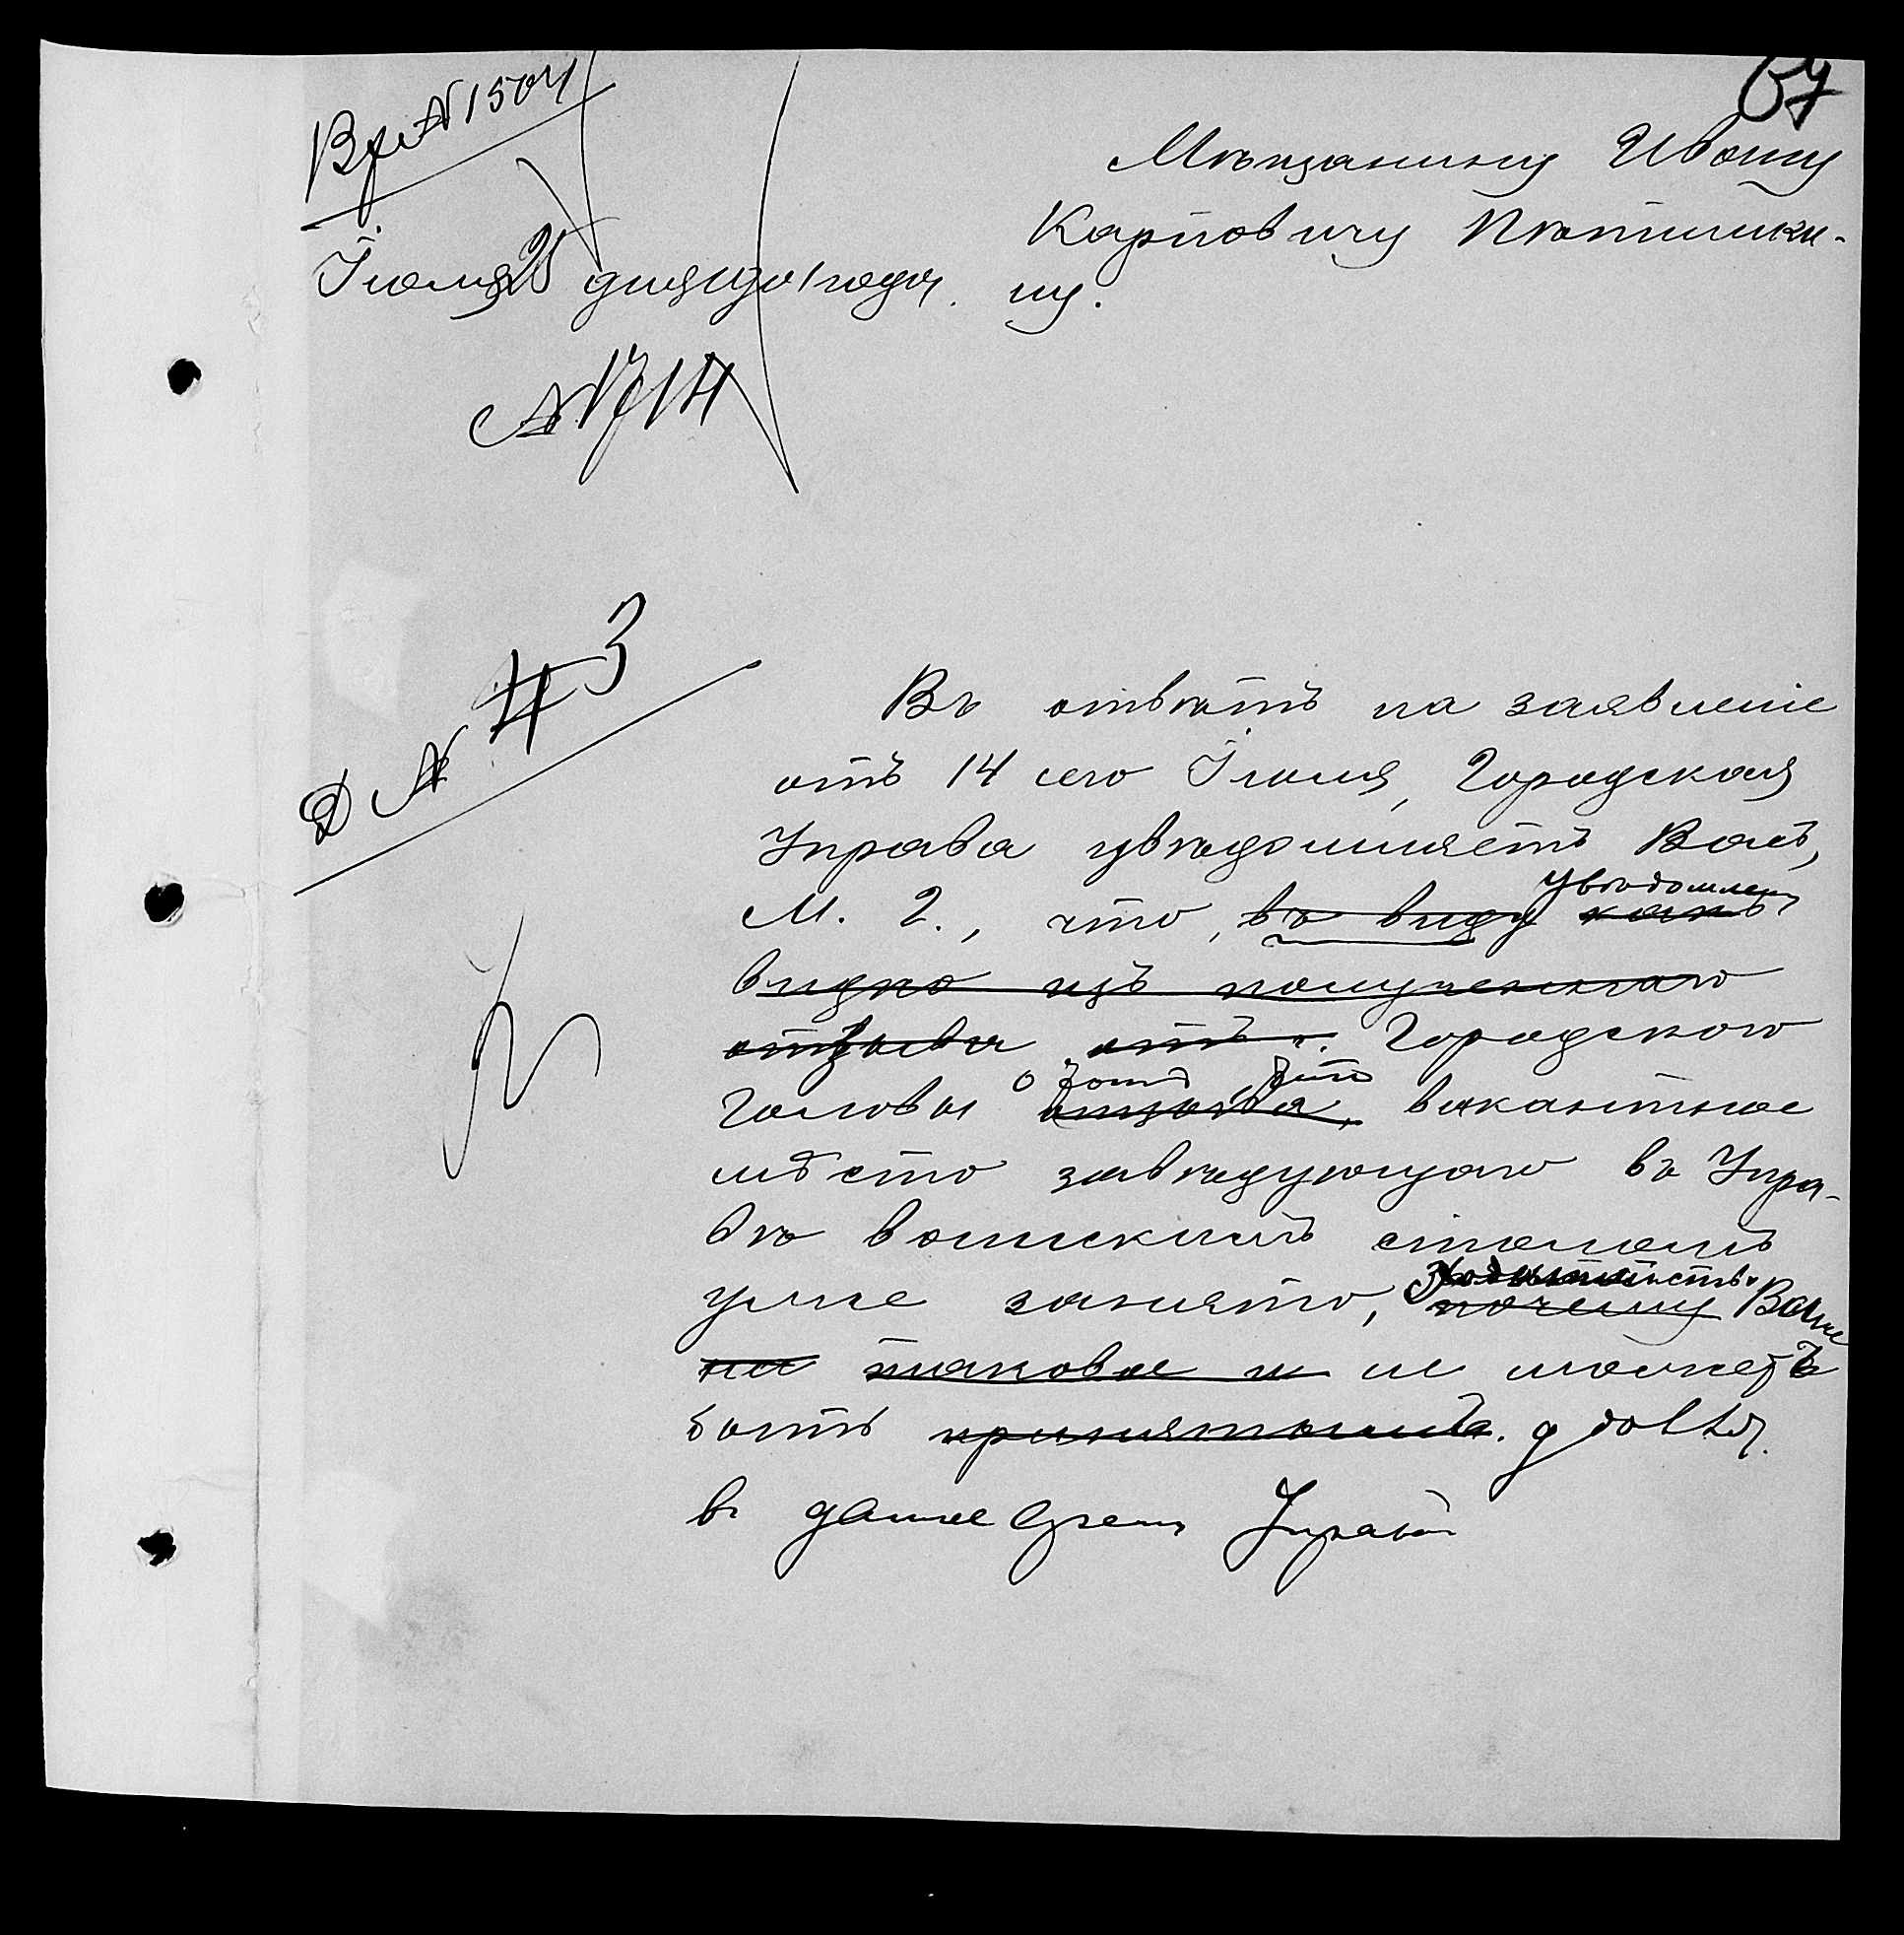 67
Вх. № 1504
Мѣщанину Ивану
Карповичу Пѣтишки-
ну.
Іюля 25 дня 1901 года.
№ 1714
Д № 43
Въ отвѣтъ на заявленіе
отъ 14 сего Іюля, Городская
Управа увѣдомляетъ Васъ,
М. Г., что, въ виду какъ
увѣдомленъ
видно изъ полученнаго
отзыва отъ г. Городского
Головы отзыва, вакантное
мѣсто завѣдующаго въ Упра-
вѣ воинскимъ столомъ
уже занято, почему Ваше
ходатайство
на таковое и не можетъ
быть принятымъ.
въ данное время Управой